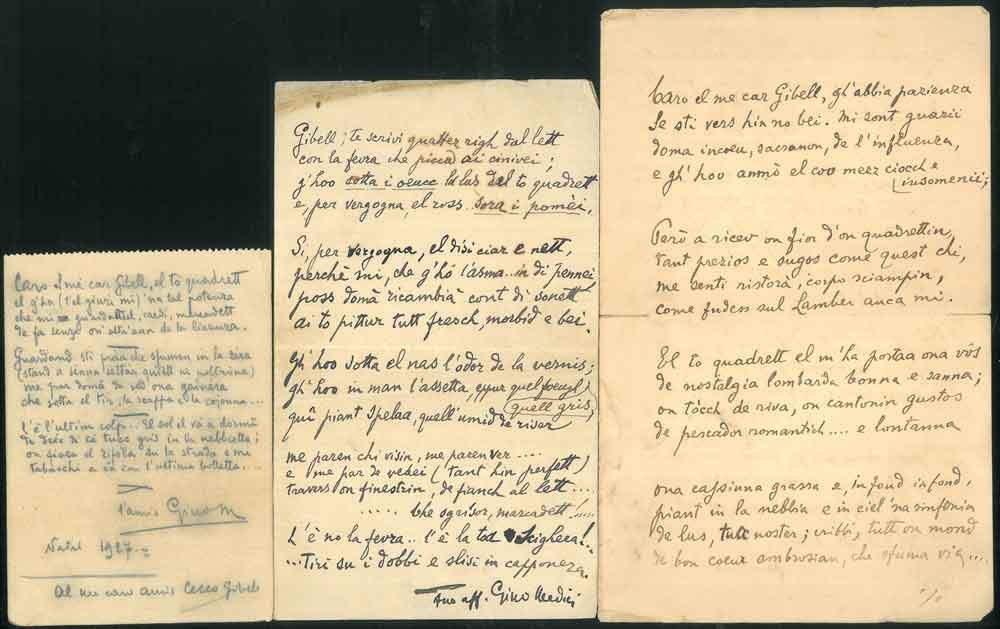 Caro el me car Gibell, el to quadrett
el g'ha (t'el giuri mi) 'na tal potenza
che mi guardattel, credi,
de fa senza on' alter ann de la licenza.
Guardand sti praa che spumen in la sera
me par domà de ved ona
che sotta el tir, la scappa e la
L'è l'ultim colp... El sol el va a dormì
de dree di cà tucc gris in la nebbietta;
on sciora el rifola su la strada e mi
a cà con l'ultima bolletta....
l'amis Gino M
Natal 1927
Al me caro amis Cecco Gibell
Gibell; te scrivi quatter righ dal lett
con la fevra che picca ai cinivei;
g'hoo sotta i oeucc la lus del to quadrett
e, per vergogna, el ross sora i pomèi.
Si, per vergogna, el disi ciar e nett,
perchè mi, che g'hó l'asma.. in di pennei
poss domà ricambià cont di sonett
ai to pittur tutt fresch, morbid e bei.
Gh'hoo sotta el nas l'ódor de la vernis;
gh'hoo in man l'assetta, eppur quel foeugl
(quell gris,
qui piant spelaa, quell'umid de riser
me paren chi visin, me paren ver....
e me par de vedei (tant hin perfett)
travers on finestrin, de fianch al lett....
..... Che sgaisor, marcadett!....
L'è no la fevra.. l'è la toa Scighera!...
...Tiri su i dobbi e slisi in capponera.
tuo aff. Gino Medici
Caro el me car Gibell, gh'abbia pazienza
Se sti vers hin no bei. Mi sont guarii
doma incoeu, sacranon, de l'influenza,
e gh'hoo anmò el coo meez ciocch e
insomenii;
Però a ricev on fior d'on quadrettin,
tant prezios e sugos come quest chi,
me senti ristorà, corpo sciampin,
come fudess sul Lamber anca mi.
El to quadrett el m'ha portaa ona vôs
de nostalgia lombarda bonna e sanna;
on tòcch de riva, on cantonin gustos
de pescador romantich.... e lontanna
ona cassinna grassa e, in fond in fond,
piant in la nebbia e in ciel 'na sinfonia
de lus, tutt noster; cribbi, tutt on mond
de bon coeur ambrosian, che sfuma via....